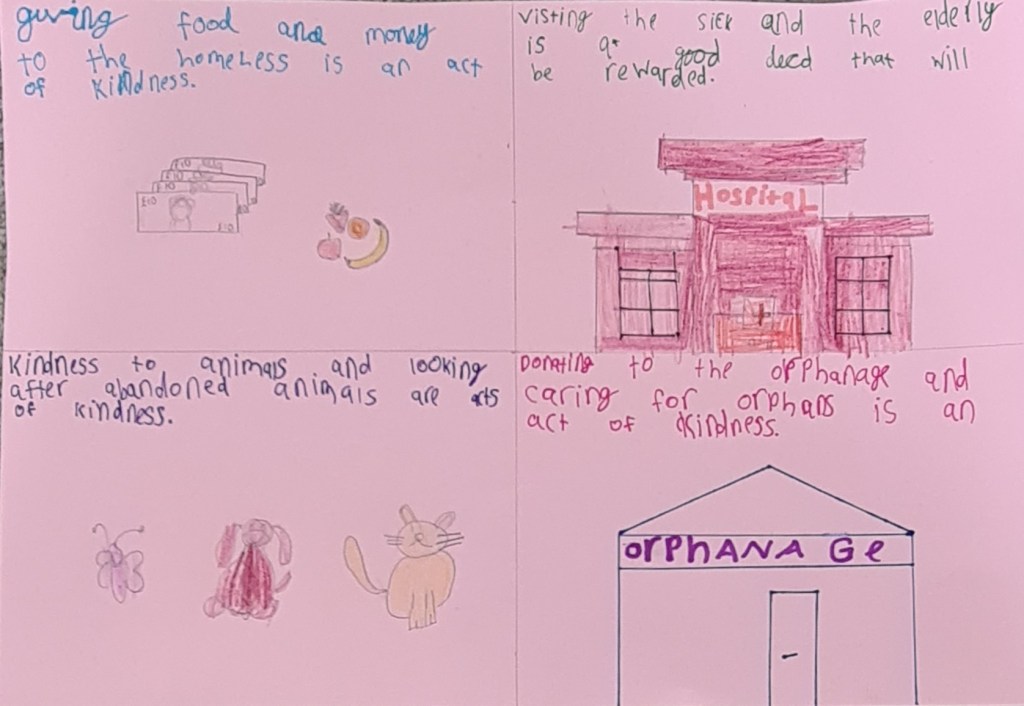 giving food and money
to the homeless is an act
of kindness.
£10
£10
£10
£10
£10
visting the sick and the elderly
is a good deed that will
be rewarded.
Hospital
Kindness to animals and looking
after abandoned animals are acts
of kindness.
Donating to the orphanage and
caring for orphans is an
act of kindness.
orPhANAGe